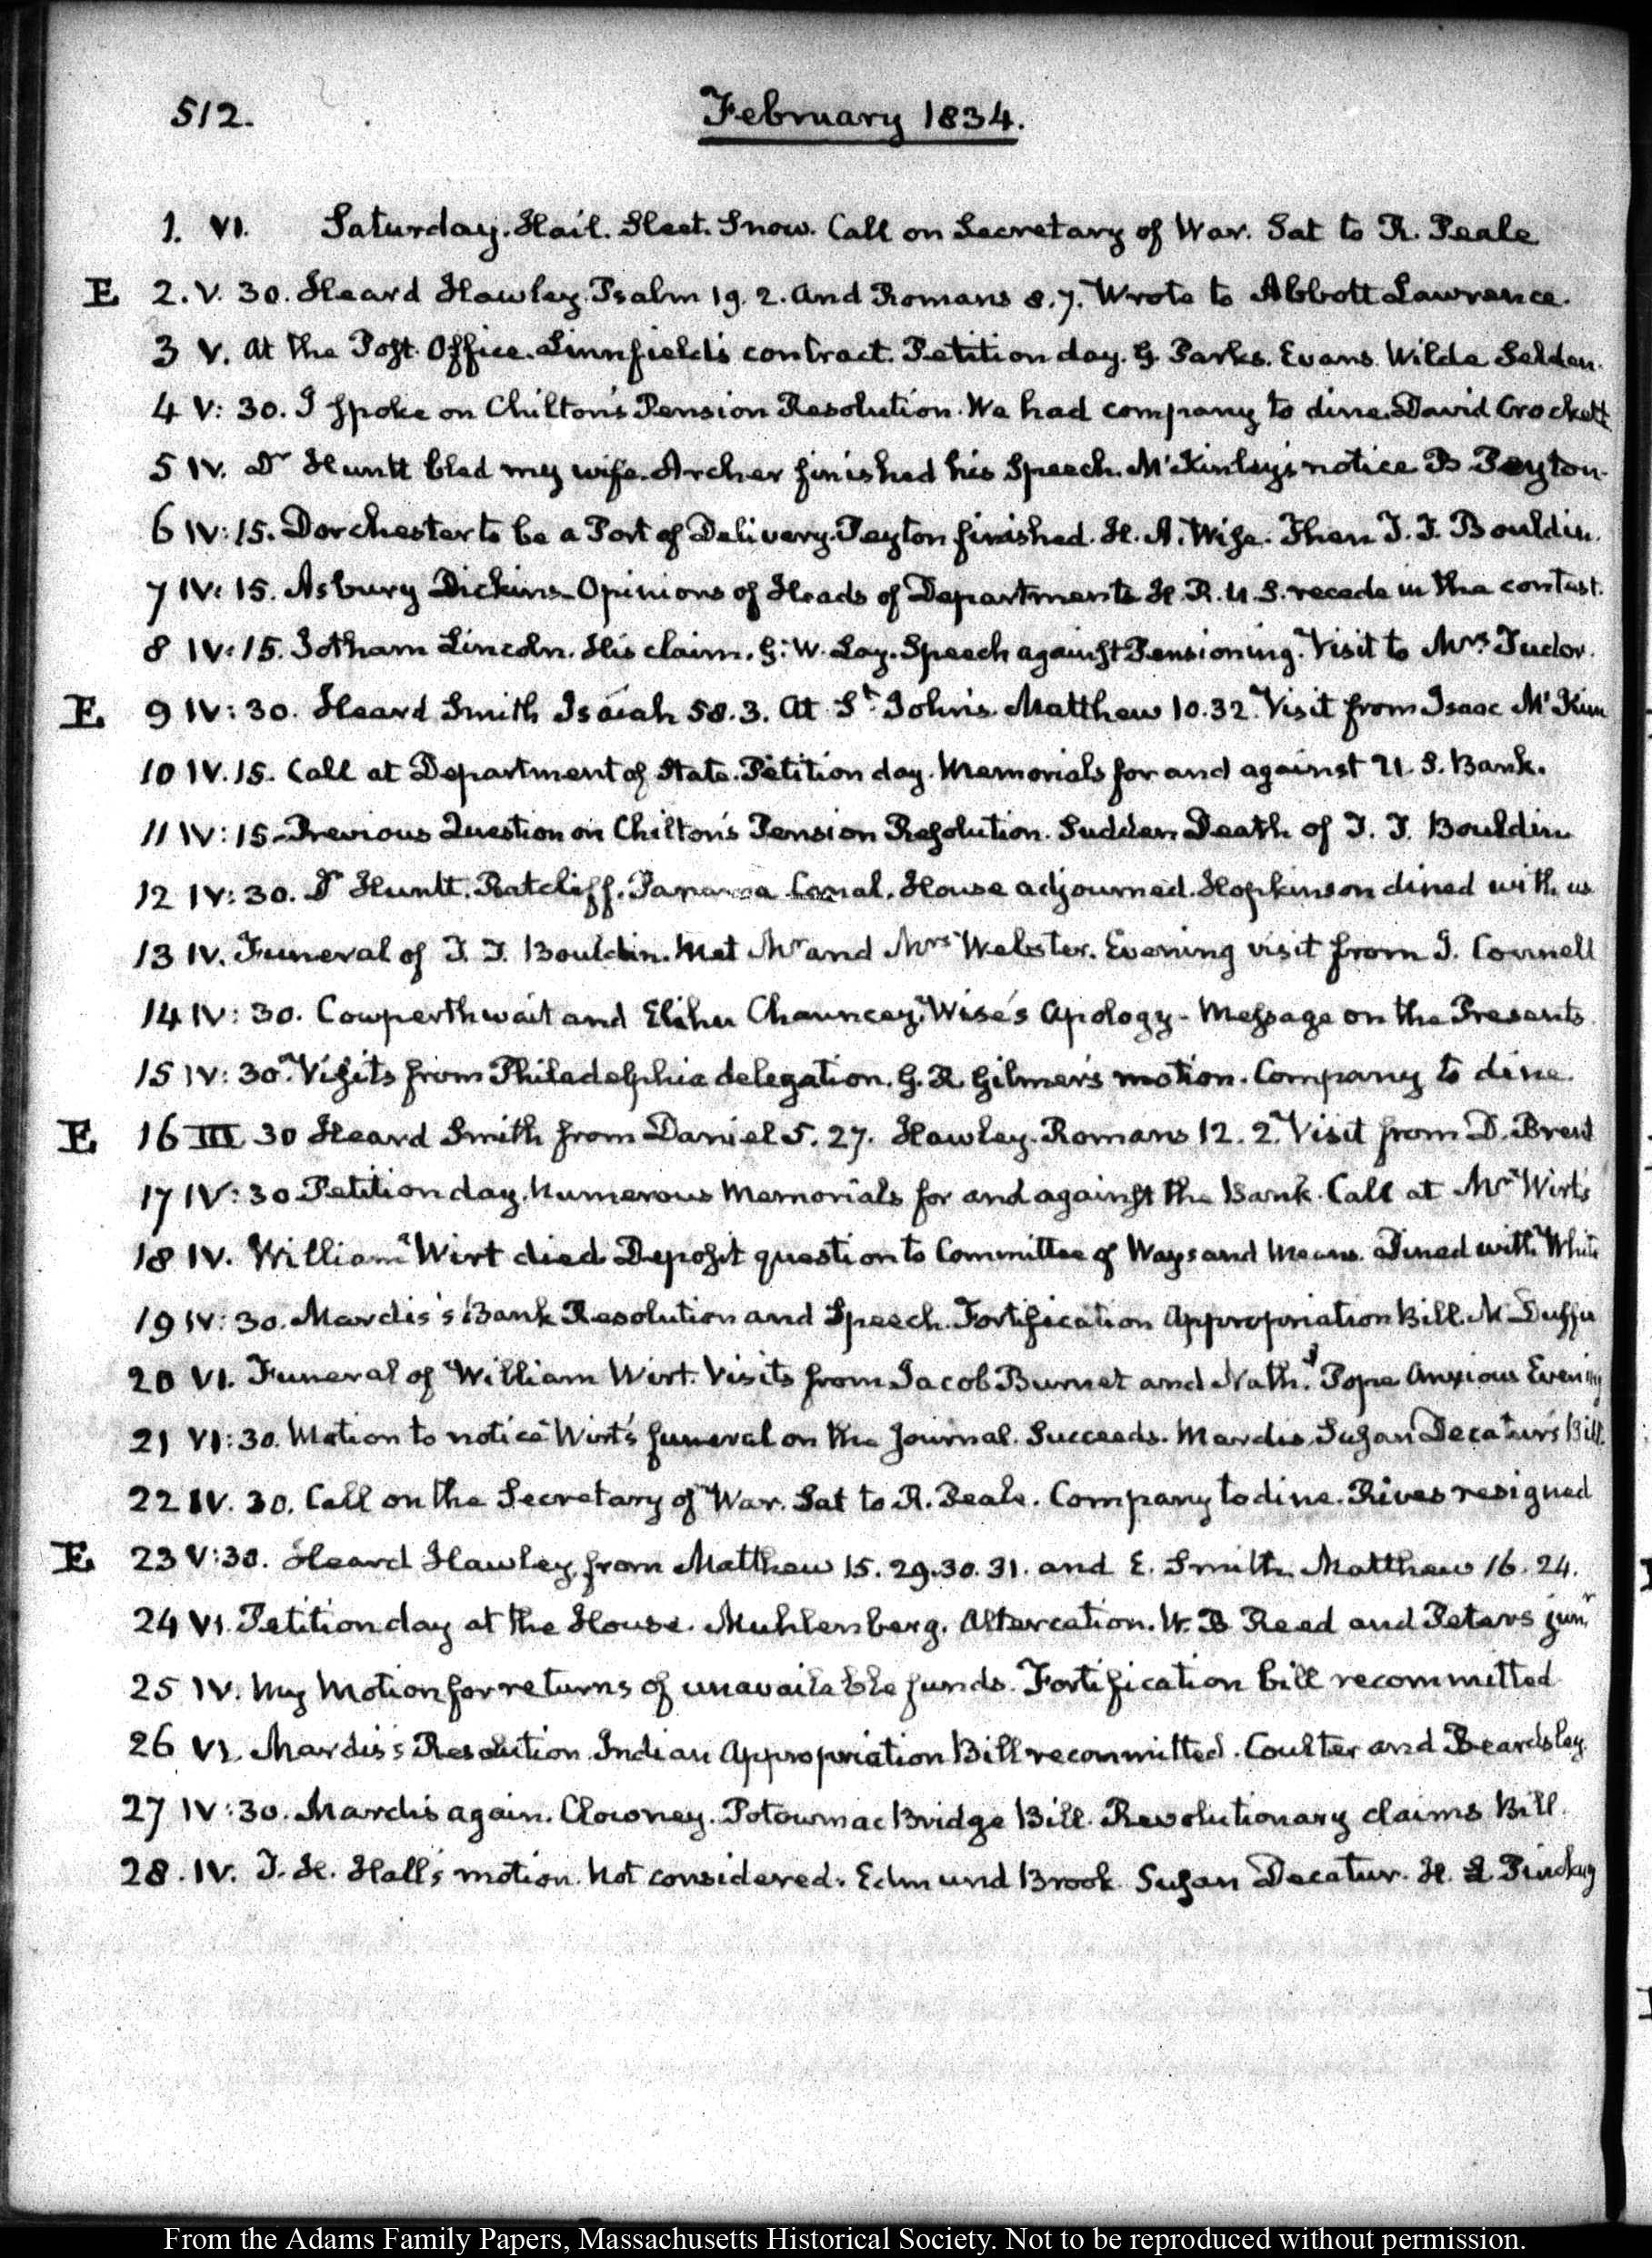 512.
February 1834.
1. VI. Saturday. Hail. Sleet. Snow. Call on Secretary of War. Sat to R. Peale
E 2. V. 30. Heard Hawley. Psalm 19. 2. and Romans 8. 7. Wrote to Abbott Lawrence.
3 V. At the Post Office. Linnfield's contract. Petition day. G Parks. Evans. Wilde Selden.
4 V: 30. I spoke on Chilton's Pension Resolution. We had company to dine. David Crockett
5 IV. Dr Huntt bled my wife. Archer finished his Speech. McKinley's notice B Peyton.
6 IV: 15. Dorchester to be a Port of Delivery. Peyton finished. H. A. Wise. Then T. T. Bouldin.
7 IV: 15. Asbury Dickins. Opinions of Heads of Departments H. R. U. S. recede in the contest.
8 IV: 15. Jotham Lincoln. His claim. G. W. Lay. Speech against Pensioning. Visit to Mrs Tudor.
E 9 IV: 30. Heard Smith Isaiah 58. 3. At St John's. Matthew 10. 32. Visit from Isaac McKim
10 IV. 15. Call at Department of State. Petition day. Memorials for and against U. S. Bank.
11 IV: 15. Previous Question on Chilton's Pension Resolution. Sudden Death of T. T. Bouldin
12 IV: 30. Dr Huntt. Ratcliff. Panama Canal. House adjourned. Hopkinson dined with us
13 IV. Funeral of T. T. Bouldin. Met Mr and Mrs Webster. Evening visit from J. Connell
14 IV: 30. Cowperthwait and Elihu Chauncey. Wise's Apology - Message on the Presents
15 IV: 30. Visits from Philadelphia delegation. G. R Gilmer's motion. Company to dine.
E 16 III 30 Heard Smith from Daniel 5. 27. Hawley. Romans 12. 2. Visit from D. Brent
17 IV: 30 Petition day. Numerous Memorials for and against the Bank. Call at Mr Wirt's
18 IV. William Wirt died Deposit question to Committee of Ways and Means. Dined with White
19 IV: 30. Mardis's Bank Resolution and Speech. Fortification Appropriation Bill. McDuffie
20 VI. Funeral of William Wirt. Visits from Jacob Burnet and Nathl Pope Anxious Evening
21 VI: 30. Motion to notice Wirt's funeral on the Journal. Succeeds. Mardis. Susan Decatur's Bill.
22 IV. 30. Call on the Secretary of War. Sat to R. Peale. Company to dine. Rives resigned
E 23 V: 30. Heard Hawley from Matthew 15. 29. 30. 31. and E. Smith. Matthew 16. 24.
24 VI. Petition day at the House. Muhlenberg. Altercation. W. B Reed and Peters junr
25 IV. My Motion for returns of unavailable funds. Fortification bill recommitted
26 VI. Mardis's Resolution. Indian Appropriation Bill recommitted. Coulter and Beardsley
27 IV: 30. Mardis again. Clowney. Potowmac Bridge Bill. Revolutionary claims Bill.
28. IV. T. H. Hall's motion. Not considered. Edmund Brook. Susan Decatur. H. L Pinckney
From the Adams Family Papers, Massachusetts Historical Society. Not to be reproduced without permission.